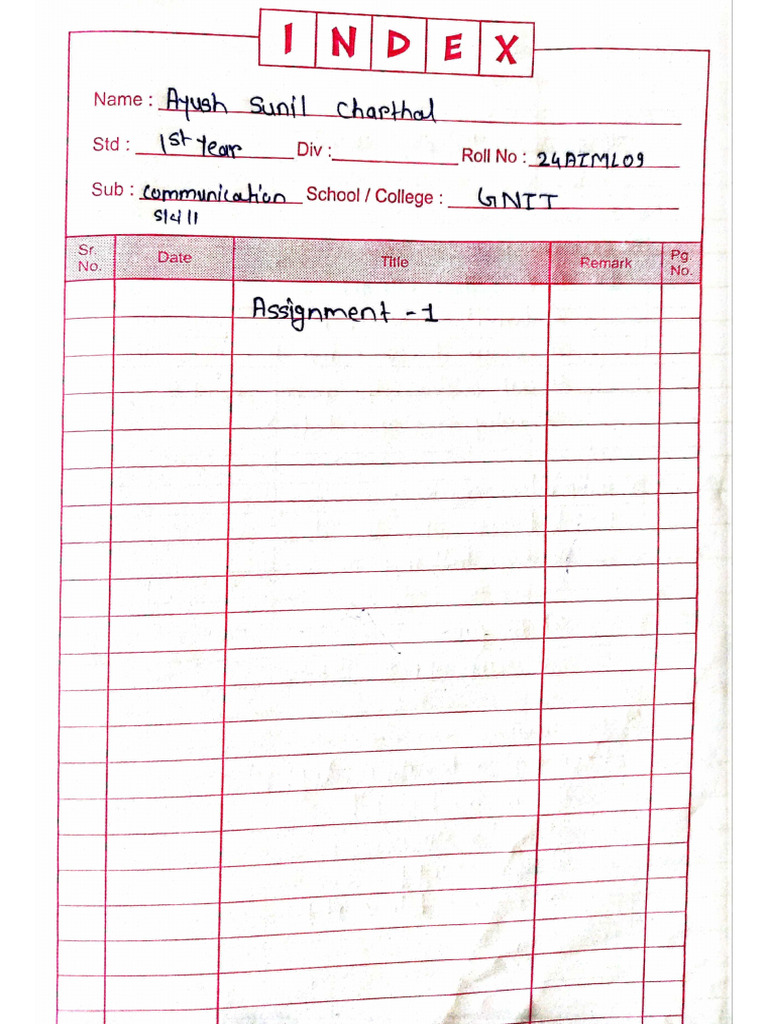 INDEX
Name : Ayush Sunil Charthal
Std : 1st Year Div : Roll No : 24AIML09
Sub : communication School / College : GNIT
Sr. No. Date Title Remark Pg. No.
Assignment - 1